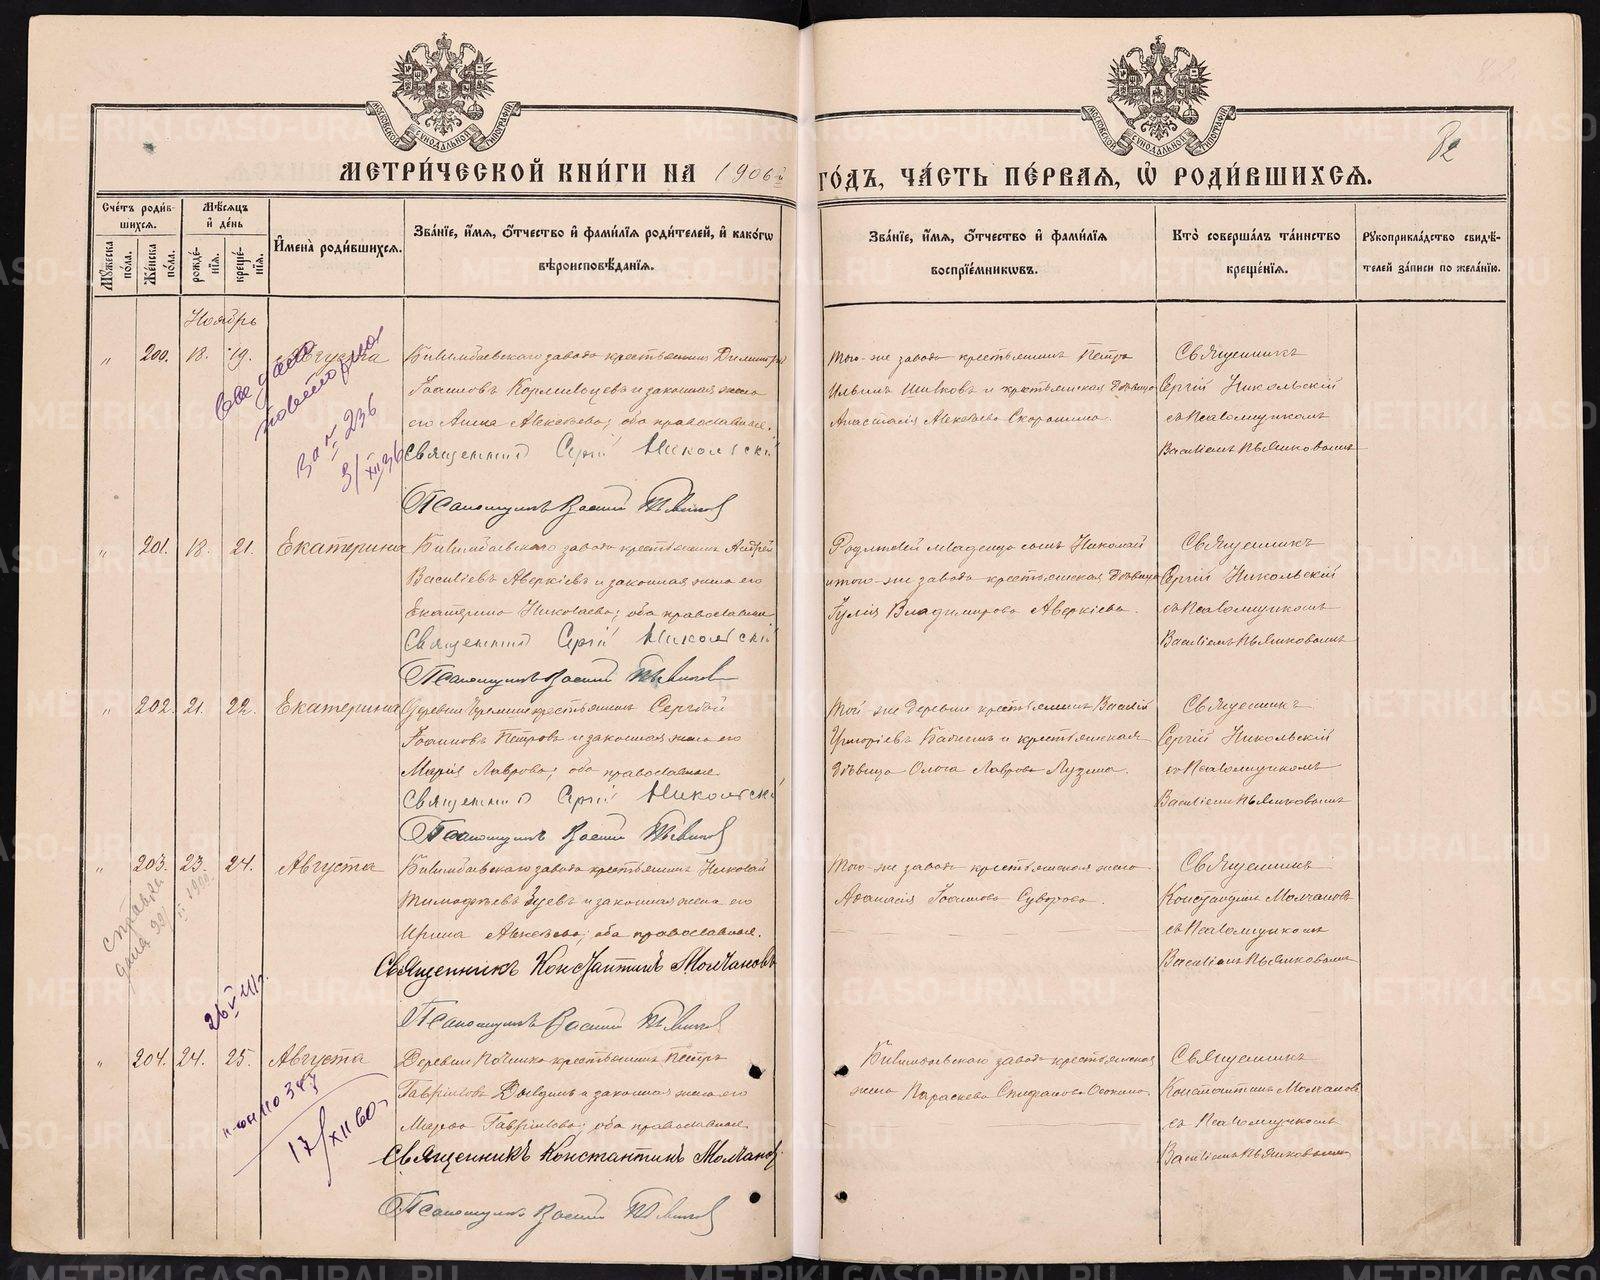 МОСКОВСКОЙ СѴНОДАЛЬНОЙ ТИПОГРАФІИ
МОСКОВСКОЙ СѴНОДАЛЬНОЙ ТИПОГРАФІИ
МЕТРИ́ЧЕСКОЙ КНИ́ГИ НА 1906й
ГО́ДЪ, ЧА́СТЬ ПЕ́РВАѦ, Ѡ РОДИ́ВШИХСѦ.
Сче́тъ роди́вшихсѧ.
Мꙋ́жеска по́ла.
Же́нска по́ла.
Мѣ́сѧцъ и҆ де́нь
рожде́нїѧ.
креще́нїѧ.
И҆мена̀ роди́вшихсѧ.
Зва́нїе, и҆́мѧ, ѻ҆́тчество и҆ фами́лїѧ роди́телей, и҆ како́гѡ
вѣроисповѣ́данїѧ.
Зва́нїе, и҆́мѧ, ѻ҆́тчество и҆ фами́лїѧ
воспрїе́мникѡвъ.
Кто̀ соверша́лъ та́инство
креще́нїѧ.
Рꙋкоприкла́дство свидѣ́-
телей за́писи по жела́нїю.
Ноябрь
" 200. 18. 19. Августа
Билимбаевскаго завода крестьянинъ Димитрій
Іоанновъ Кормильцевъ и законная жена
его Анна Алексѣева; оба православные.
Священникъ Сергій Никольскій
Псаломщикъ Василій Пьянковъ
Того-же завода крестьянинъ Петръ
и крестьянская дѣвица
Анастасія Алексѣева
Священникъ
Сергій Никольскій
съ псаломщикомъ
Василіемъ Пьянковымъ
повторно
за № 236
3/XII 36
" 201. 18. 21. Екатерина
Билимбаевскаго завода крестьянинъ Андрей
Василіевъ Аверкіевъ и законная жена его
Екатерина Николаева; оба православные
Священникъ Сергій Никольскій
Псаломщикъ Василій Пьянковъ
Родителей младенца сынъ Николай
и того-же завода крестьянская дѣвица
Юлія Владимирова Аверкіева.
Священникъ
Сергій Никольскій
съ псаломщикомъ
Василіемъ Пьянковымъ
" 202. 21. 22. Екатерина
Деревни крестьянинъ Сергѣй
Іоанновъ Петровъ и законная жена его
Марія Лаврова; оба православные
Священникъ Сергій Никольскій
Псаломщикъ Василій Пьянковъ
Той-же деревни крестьянинъ Василій
Григоріевъ и крестьянская
дѣвица Ольга Лаврова Лузина.
Священникъ
Сергій Никольскій
съ псаломщикомъ
Василіемъ Пьянковымъ
" 203. 23. 24. Августа
Билимбаевскаго завода крестьянинъ Николай
Тимофѣевъ Зуевъ и законная жена его
Ирина Алексѣева; оба православные.
Священникъ Константинъ Молчановъ
Псаломщикъ Василій Пьянковъ
Того-же завода крестьянская жена
Аѳанасія Іоаннова Суворова.
Священникъ
Константинъ Молчановъ
съ псаломщикомъ
Василіемъ Пьянковымъ
справка
дана
" 204. 24. 25. Августа
Деревни крестьянинъ Петръ
Гавріиловъ и законная жена его
Гавріилова; оба православные
Священникъ Константинъ Молчановъ
Псаломщикъ Василій Пьянковъ
Билимбаевскаго завода крестьянская
жена Параскева
Священникъ
Константинъ Молчановъ
съ псаломщикомъ
Василіемъ Пьянковымъ
17/XII 60
METRIKI.GASO-URAL.RU